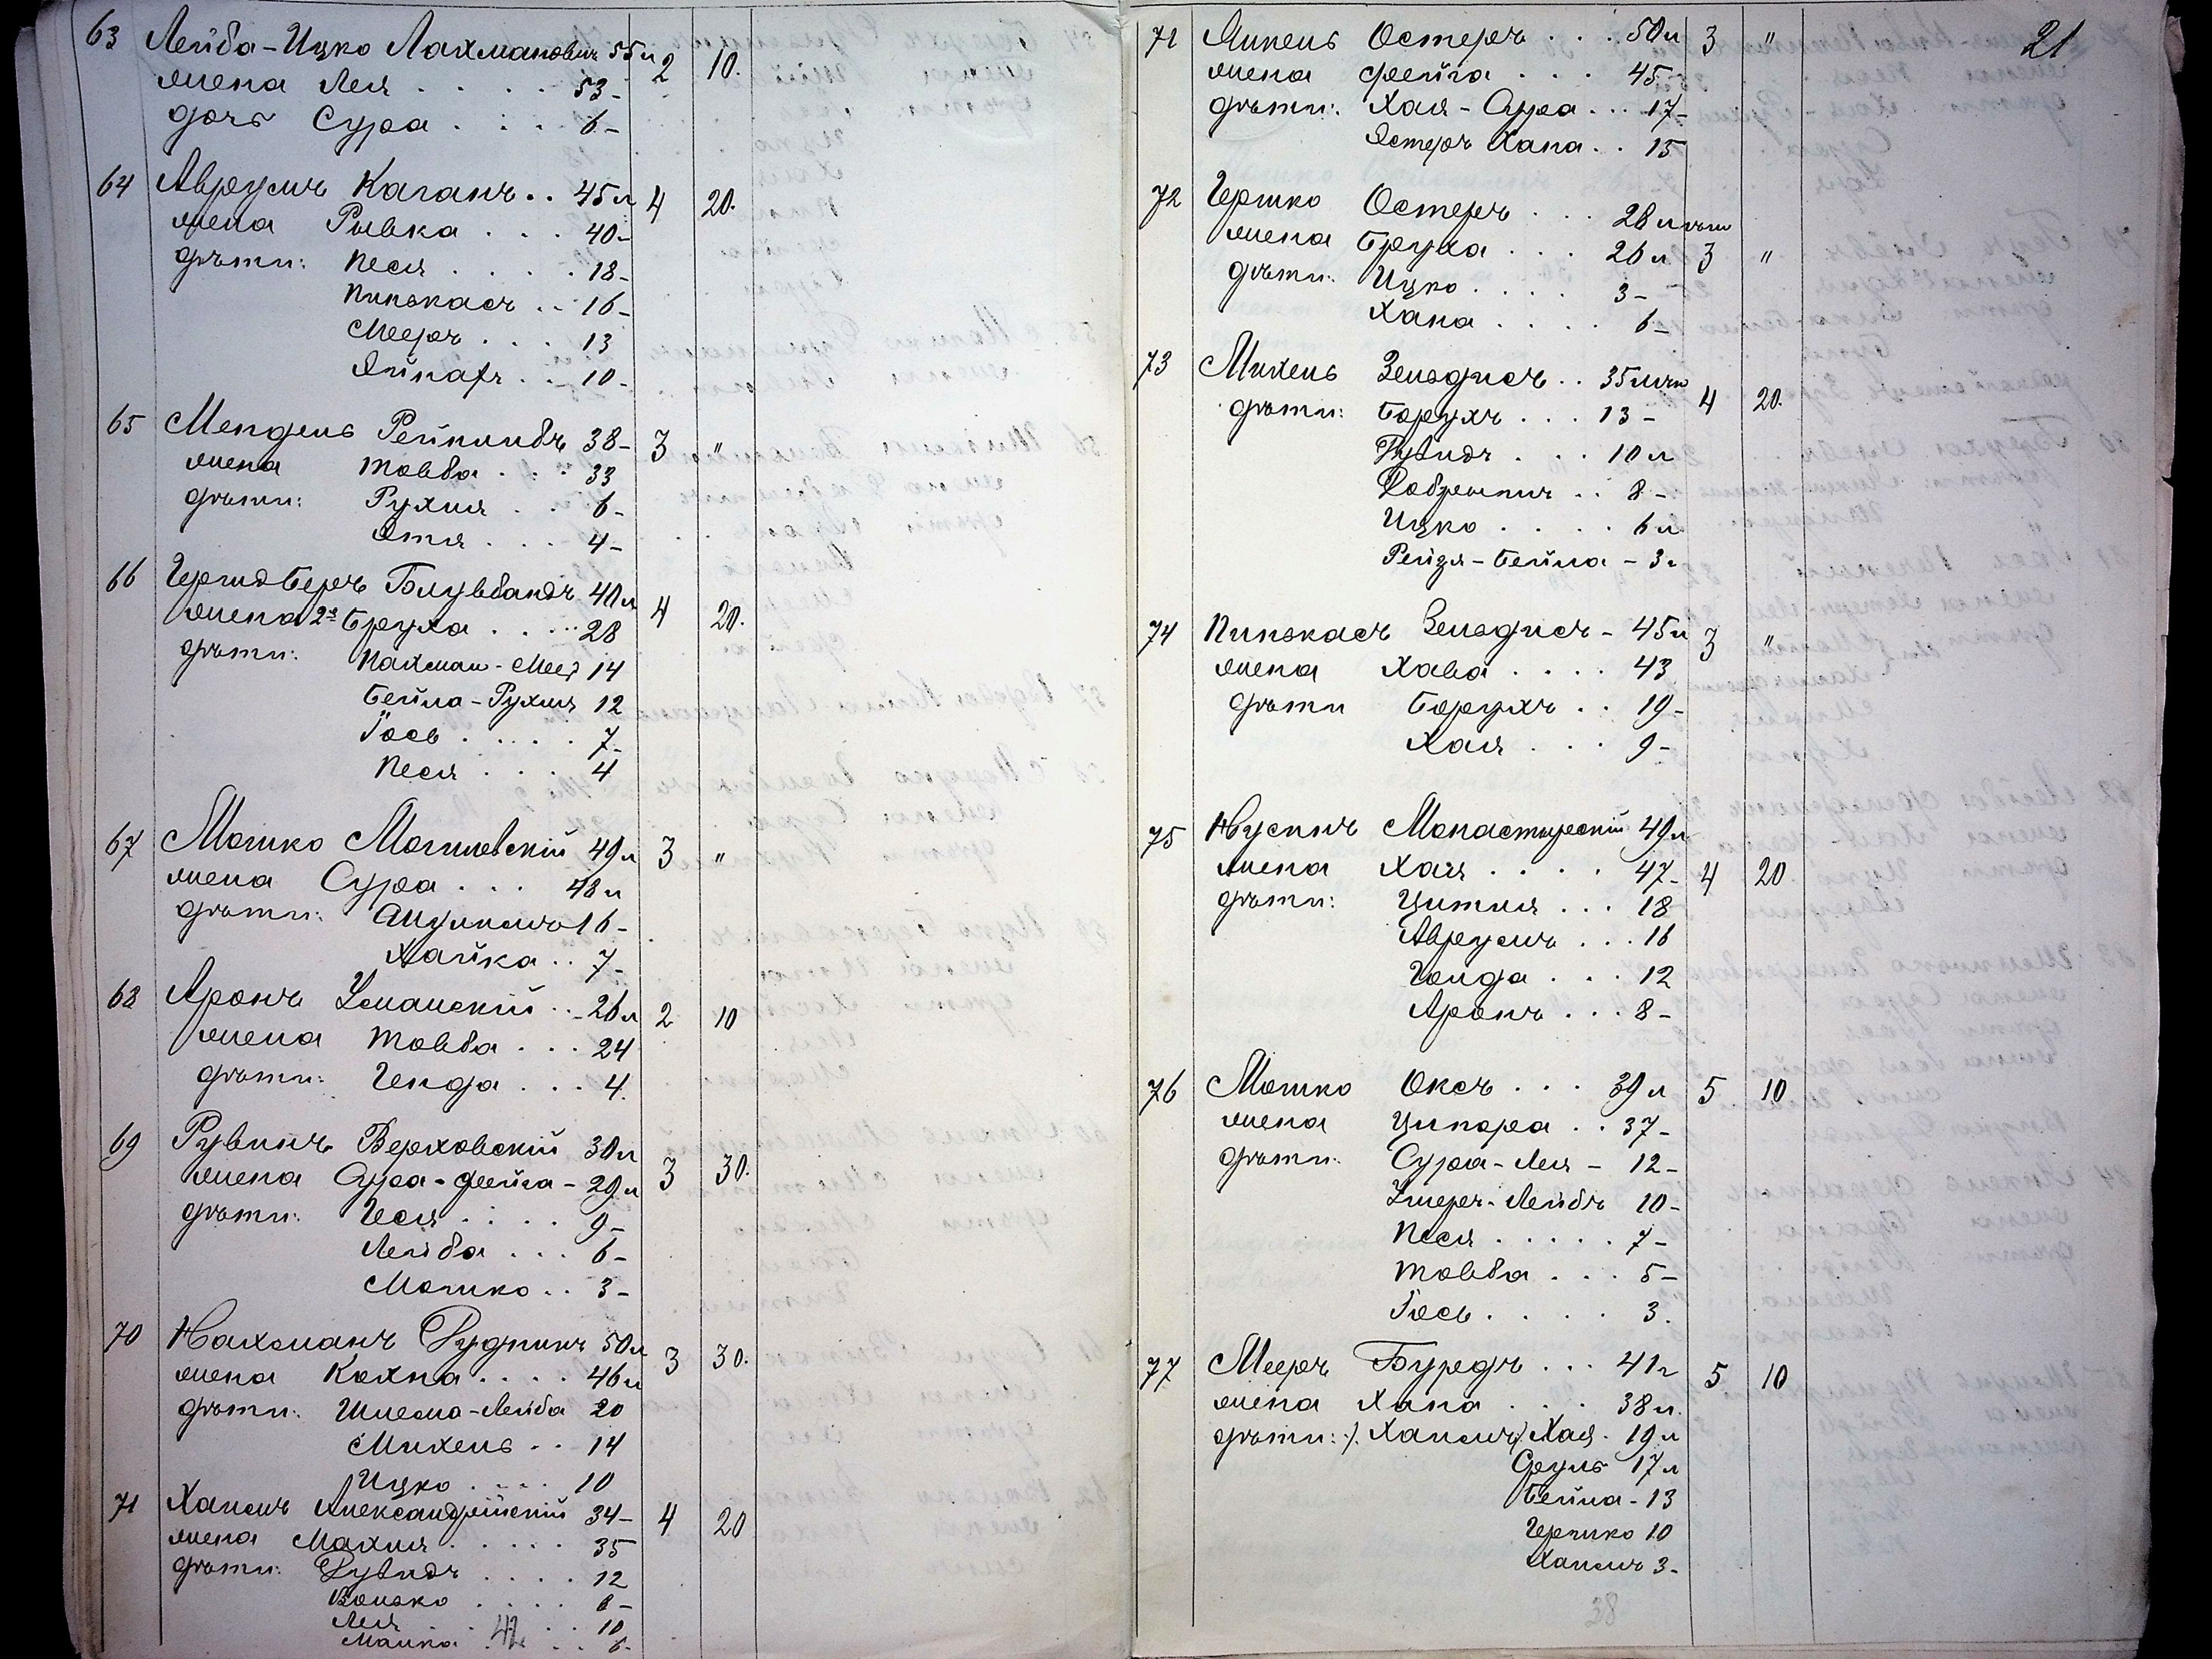 63 Лейба-Ицко Лахмановичъ 55 л 2 10.
жена Лея . . . . 53-
дочь Сура . . . . 6-
64 Аврумъ Каганъ . . 45 л 4 20.
жена Рывка . . . 40-
дѣти: Песя . . . . 18-
Пинькасъ . . 16-
Мееръ . . . 13
65 Мендель Рейнлибъ 38- 3 "
жена Товба . . . 33
дѣти: Рухля . . 6-
Этя . . . 4-
66 Гершъ Беръ Блувбандъ 40 л 4 20.
жена 2я Бруха . . . . 28
дѣти: Нахман-Меер 14
Бейла-Рухля 12
Іось . . . . . 7-
Песя . . . 4
67 Мошко Могилевскій 49 л 3 "
жена Сура . . . 48 л
дѣти: 16-
Хайка . . 7-
68 Аронъ Уманскій . . 26 л 2 10
жена Товба . . . 24
дѣти: Генда . . . 4
69 Рувинъ Верховскій 30 л 3 30.
жена Сура-Фейга - 29 л
дѣти: Геся . . . . 9-
Лейба . . . 6-
Мошко . . 3-
70 Нахманъ Рудникъ 50 л 3 30.
жена Кохна . . . . 46 л
дѣти: Шлема-Лейба 20
Михель . . 14
Ицко . . . . 10
71 Хаимъ Александрійскій 34- 4 20
жена Махля . . . . . 35
дѣти: Дувидъ . . . . 12
Волько . . . . 8-
Лея . . . 10
Малка . . . 6-
42
21
71 Янкель Остеръ . . . 50 л 3 "
жена Фейга . . . 45
дѣти: Хая-Сура . . 17-
Эстеръ Хана . . 15
72 Гершко Остеръ . . . 28 л
жена Бруха . . . 26 л 3 "
дѣти: Ицко . . . . 3-
Хана . . . . 6-
73 Михель Зельдисъ . . 35 4 20.
дѣти: Борухъ . . . 13-
Дувидъ . . . 10 л
8-
Ицко . . . . 6 л
Рейзя-Бейла - 3 г
74 Пинькасъ Зельдисъ - 45 л 3 "
жена Хава . . . . 43
дѣти Борухъ . . 19-
Хая . . . 9-
75 Нусинъ Монастырскій 49 л
жена Хая . . . . 47- 4 20
дѣти: Цитля . . . 18
Аврумъ . . . 16
Голда . . . 12
Аронъ . . . 8-
76 Мошко Оксъ . . . 39 л 5 10
жена Ципора . . 37-
дѣти: Сура-Лея - 12-
Шмеръ-Лейбъ 10-
Песя . . . . . 7-
Товба . . . 5-
Іось . . . . 3.
77 Мееръ Буредъ . . . 41 г 5 10
жена Хана . . . 38 л.
дѣти: ./. Хаимъ) Хая . 19 л
Сруль 17 л
Бейла - 13
Гершко 10
Хаимъ 3-
38